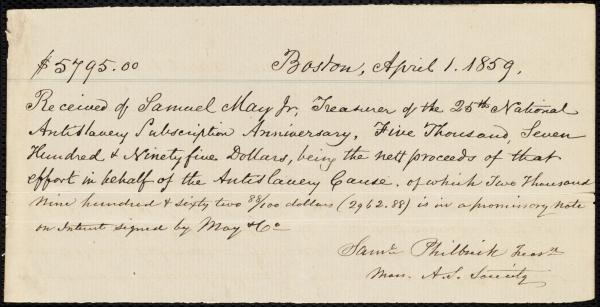 $5795.00 Boston, April 1. 1859.
Received of Samuel May Jr, Treasurer of the 25th National
Antislavery Subscription Anniversary, Five Thousand, Seven
Hundred & Ninety five Dollars, being the nett proceeds of that
effort in behalf of the Antislavery Cause. of which Two Thousand
Nine hundred & sixty two 88/100 dollars (2962.88) is in a promissory note
on Interest signed by May & Co
Saml Philbrick Treasr
Mass. A.S. Society